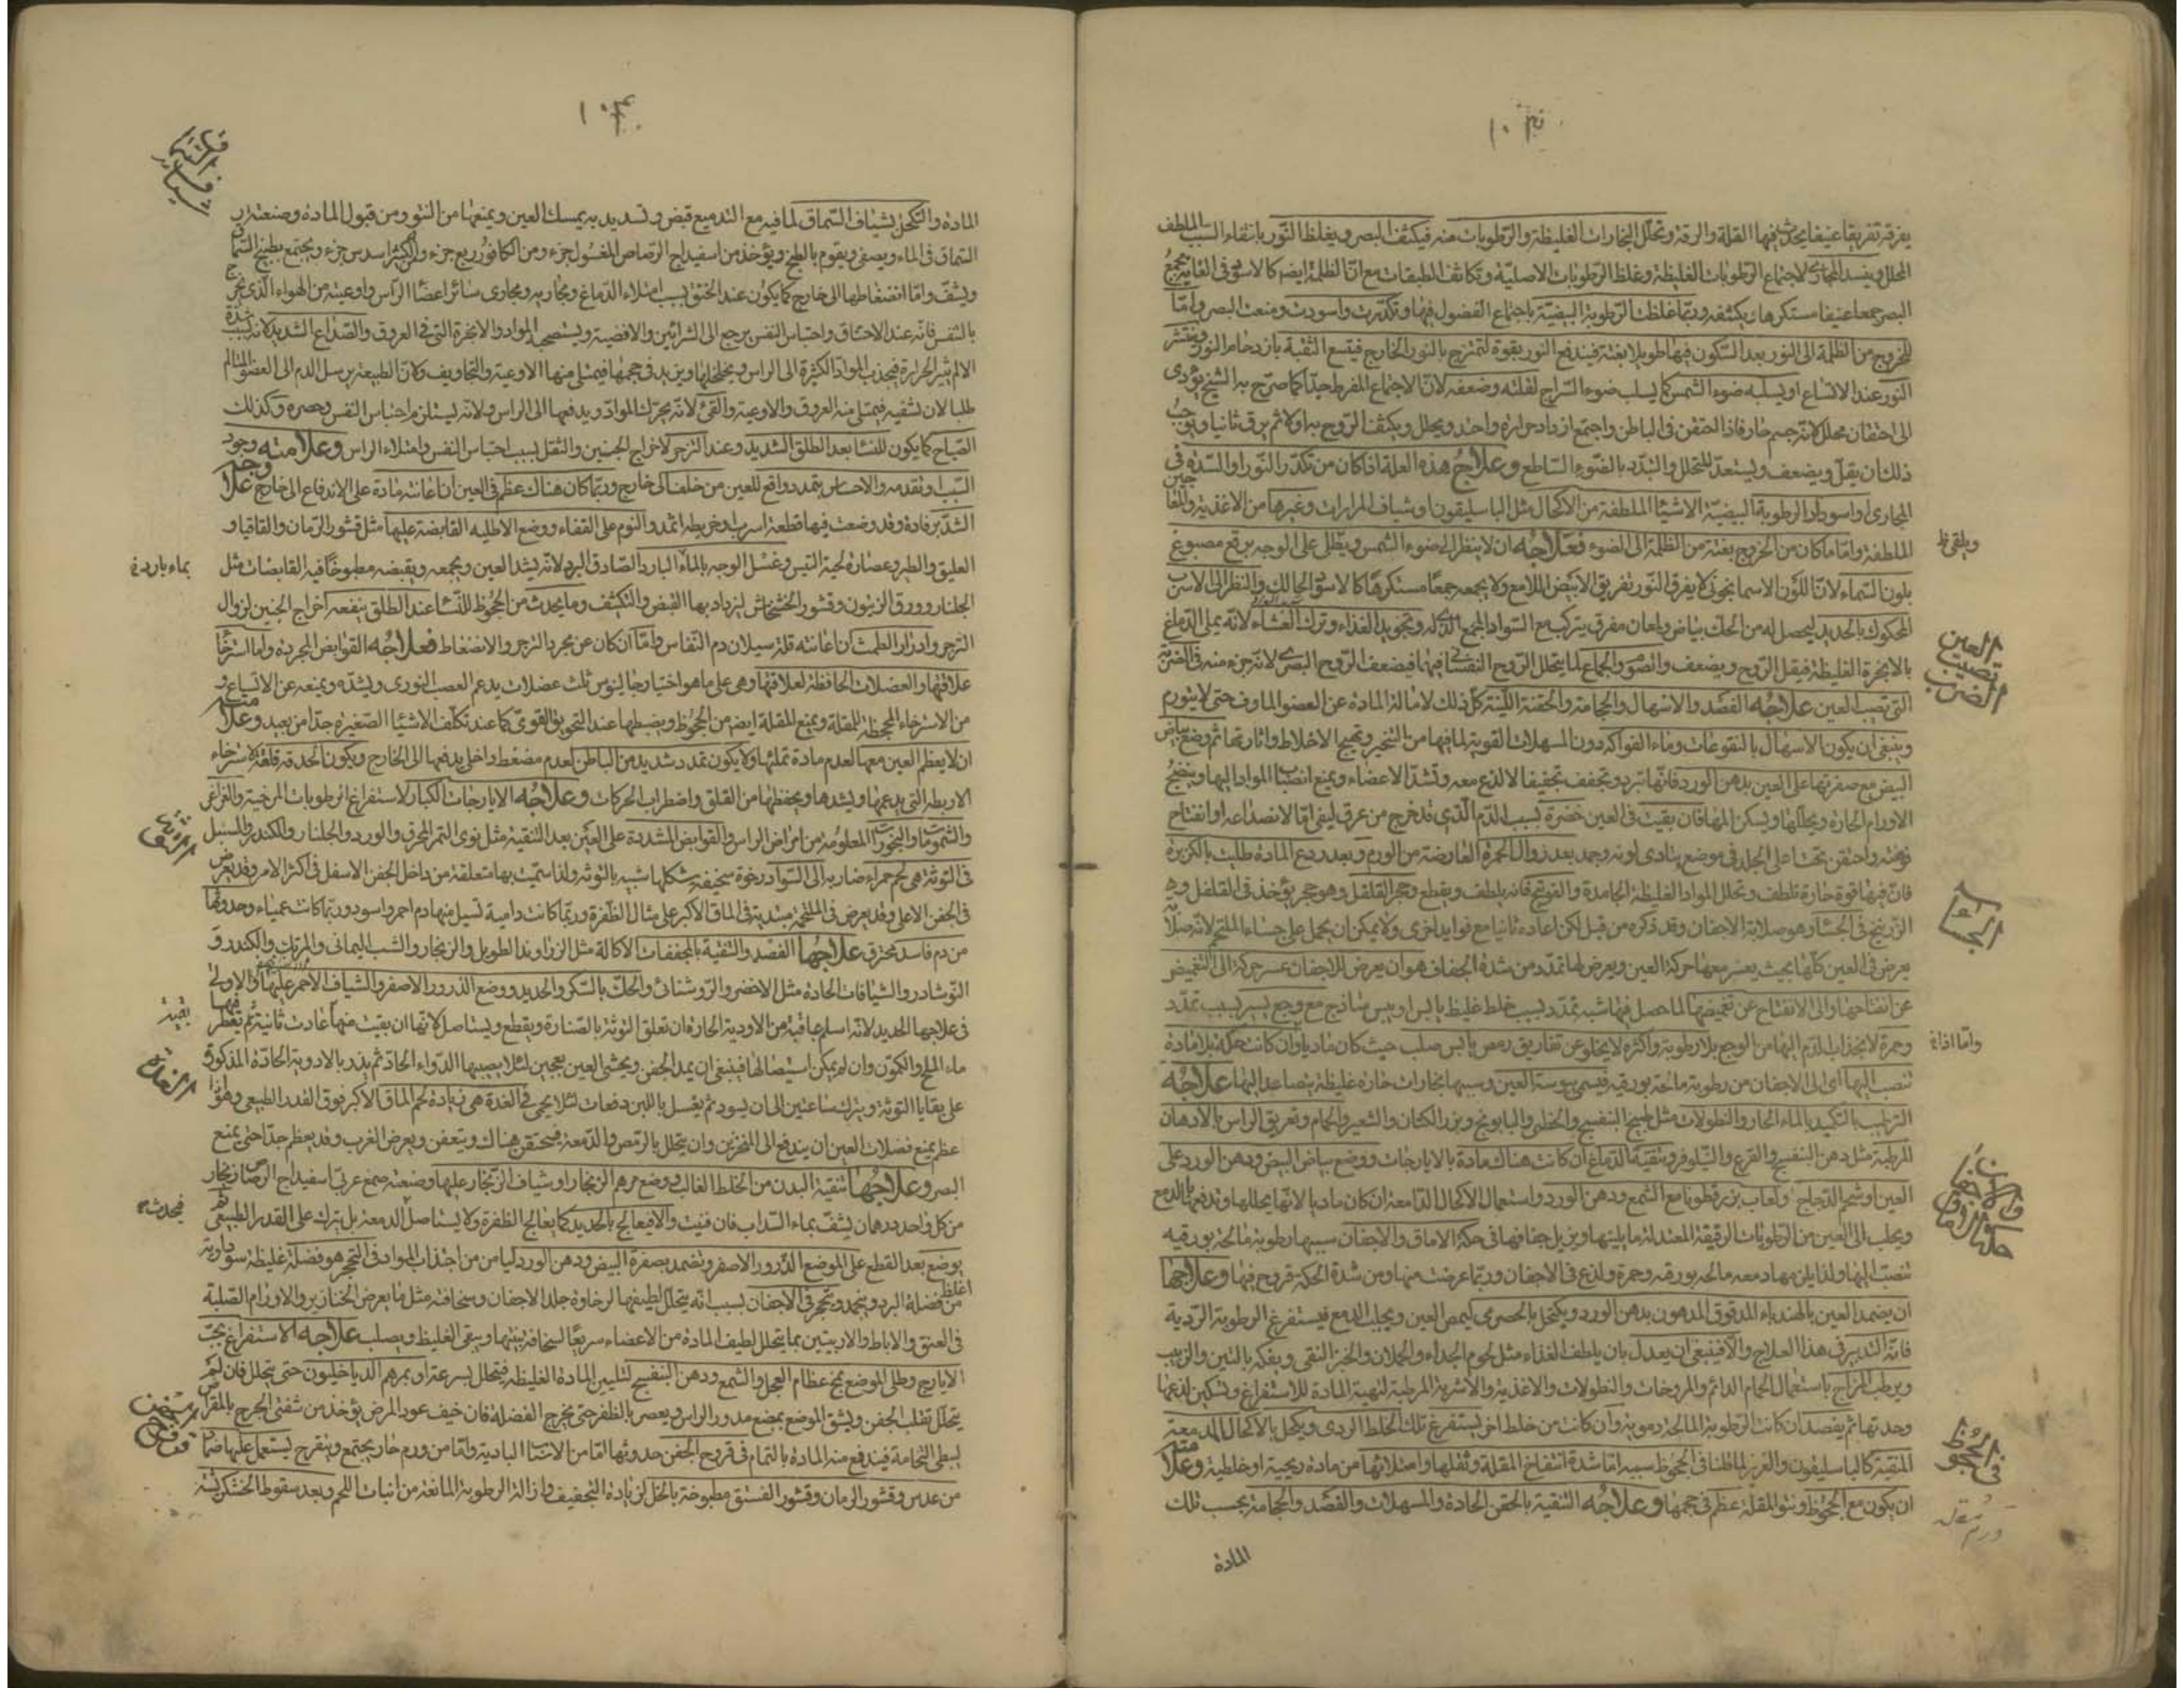 يفرقه تفريقا عنيفا يحدث فيها القلة والرقة وتحلل البخارات الغليظة والرطوبات منه فيكثف البصر ويغلظ النور بانتفاء السبب الملطف
المحلل وينسد المجاري لاجتماع الرطوبات الغليظة وغلظ الرطوبات الاصلية وتكاثف الطبقات مع ان الظلمة ايضا كالاسود في الغاية يجمع
البصر جمعا عنيفا مستكرها ويكثفه وربما غلظت الرطوبة البيضية باجتماع الفضول فيها وتكدرت واسودت ومنعت البصر واما
للخروج من الظلمة الى النور بعد السكون فيها طويلا بغتة فيندفع النور بقوة لتمتزج بالنور الخارج فيتسع الثقبة بازدحام النور وينتشر
النور عند الاتساع او يسلبه ضوء الشمس كما يسلب ضوء السراج لقلته وضعفه لان الاجتماع المفرط جدا كما صرح به الشيخ يؤدي
الى احتقان محلل لانه جسم حار فاذا احتقن في الباطن واجتمع ازداد حرارة واحتد ويحلل ويكثف الروح به اولا ثم يرق ثانيا ويوجب
ذلك ان يقل ويضعف ويستعد للتحلل والتبدد بالضوء الساطع وعلاج هذه العلة اذا كان من تكدر النور او السدة في
المجاري او اسوداد الرطوبة البيضية الاشياء الملطفة من الاكحال مثل الباسليقون وشياف المرارات وغيرها من الاغذية والمعاجين
الملطفة واما ما كان من الخروج بغتة من الظلمة الى الضوء فعلاجه ان لا ينظر الى ضوء الشمس ويطلى على الوجه برقع مصبوغ
بلون السماء لان اللون الاسمانجوني لا يفرق النور تفريق الابيض اللامع ولا يجمعه جمعا مستكرها كالاسود الحالك والنظر الى الاسرب
المحكوك بالحديد ليحصل له من الحك بياض ولمعان مفرق يتركب مع السواد المجمع الذي له وتجويد الغذاء وترك العشاء لانه يملي الدماغ
بالابخرة الغليظة فيقل الروح ويضعف والصوم والجماع لما يتحلل الروح النفساني فيها فيضعف الروح البصري لانه جزء منه في الضربة
التي تصيب العين علاجه الفصد والاسهال والحجامة والحقنة اللينة كل ذلك لامالة المادة عن العضو الماوف حتى لا يتورم
وينبغي ان يكون الاسهال بالنقوعات وماء الفواكه دون المسهلات القوية لما فيها من التخير وتهيج الاخلاط واثارتها ثم وضع بياض
البيض مع صفرتها على العين بدهن الورد فانها تبرد وتجفف تجفيفا لا لذع معه وتشد الاعضاء ويمنع انصباب المواد اليها وينضج
الاورام الحارة ويحللها ويسكن المها فان بقيت في العين خضرة بسبب الدم الذي قد خرج من عرق ليفي اما لانصداعه او انفتاح
فوهته واحتقن تحت اعلى الجلد في موضع يتادى لونه وجمد بعد زوال الحمرة العارضة من الورم وبعد ردع المادة طليت بالكزبرة
فان فيها قوة حارة تلطف وتحلل المواد الغليظة الجامدة والفوتنج فانه يلطف ويقطع وحجر القلقل وهو حجر يؤخذ في القلقل
الزرنيخ في الجسا وهو صلابة الاجفان وقد ذكره من قبل لكن اعاده ثانيا مع فوايد اخرى ولا يمكن ان يحمل على جساء الملتحم لانه صلابة
يعرض في العين كلها بحيث يعسر معها حركة العين ويعرض لها تمدد من شدة الجفاف هو ان يعرض للاجفان عسر حركة الى التغميض
عن انفتاحها والى الانفتاح عن تغميضها لما حصل فيها شبه تمدد بسبب خلط غليظ يابس او يبس ساذج مع وجع يسير بسبب تمدد
وحمرة لانجذاب الدم اليها من الوجع بلا رطوبة واكثره لا يخلو عن تفاريق رمص يابس صلب حيث كان ماديا وان كانت حكة بلا مادة
تنصب اليها اي الى الاجفان من رطوبة مالحة بورقية فيسمى يبوسة العين وسببها بخارات حارة غليظة يتصاعد اليها علاجه
الترطيب بالتكميد بالماء الحار والنطولات مثل طبيخ البنفسج والخطمي والبابونج وبزر الكتان والشعير والحمام وتعريق الراس بالادهان
المرطبة مثل دهن البنفسج والقرع والنيلوفر وتنقية الدماغ ان كانت هناك مادة بالايارجات ووضع بياض البيض ودهن الورد على
العين او شحم الدجاج ولعاب بزر قطونا مع الشمع ودهن الورد واستعمال الاكحال الدامعة ان كان ماديا لانها يحللها وتدفعها بالدمع
ويجلب الى العين من الرطوبات الرقيقة المعتدلة ما يلينها ويزيل جفافها في حكة الاماق والاجفان سببها رطوبة مالحة بورقيه
تنصب اليها ولذا يلزمها دمعة مالحة بورقية وحمرة ولذع في الاجفان وربما عرضت منها ومن شدة الحكة قروح فيها وعلاجها
ان يضمد العين بالهندباء المدقوق المدهون بدهن الورد ويكتحل بالحصرمي ليمص العين ويجلب الدمع فيستفرغ الرطوبة الردية
فانه التدبير في هذا العلاج والا فينبغي ان يعدل بان يلطف الغذاء مثل لحوم الجداء والحملان والخبز النقي ويفكه بالتين والزبيب
ويرطب المزاج باستعمال الحمام الدائم والمروخات والنطولات والاغذية والاشربة المرطبة لتهيئة المادة للاستفراغ وتسكين لذعها
وحدتها ثم يفصد ان كانت الرطوبة المالحة دموية وان كانت من خلط اخر يستفرغ تلك الخلط الردي ويكحل بالاكحال المدمعة
المنقية كالباسليقون والغريز لما ظنا في الجحوظ سببه اما شدة انتفاخ المقلة وثقلها وامتلائها من مادة ريحية او خلطية وعلامته
ان يكون مع الجحوظ ونتو المقلة عظم في حجمها وعلاجه التنقية بالحقن الحادة والمسهلات والفصد والحجامة بحسب تلك
المادة
وبلقى
العين تصيب الضرب
الجسا
واما اذا
حكة الاماق والاجفان
في الجحوظ
ورم مقله
المادة والتكحل بشياف السماق لما فيه مع التدميع قبض وتسديد به يمسك العين ويمنعها من النتو ومن قبول المادة وصنعته ان
السماق في الماء ويصفى ويقوم بالطبخ ويؤخذ من اسفيداج الرصاص المغسول جزء ومن الكافور ربع جزء والكثيرا سدس جزء ويجتمع بطبيخ السماق
ويشف واما انضغاطها الى خارج كما يكون عند الخنق بسبب امتلاء الدماغ ومجاريه ومجاري سائر اعضا الراس واوعيته من الهواء الذي يخرج
بالتنفس فانه عند الاختناق واحتباس النفس يرجع الى الشرائين والافضية ويستصحب المواد والابخرة التي في العروق والصداع الشديد لانه بسبب شدة
الالم يثير الحرارة فيجذب المواد الكثيرة الى الراس ويخلخلها ويزيد في حجمها فيمتلي منها الاوعية والتجاويف ولان الطبيعة يرسل الدم الى العضو المتالم
طلبا لان تشفيه فيمتلي منه العروق والاوعية والقيء لانه يحرك المواد ويدفعها الى الراس ولانه يستلزم احتباس النفس وحصره وكذلك
الصياح كما يكون للنسا بعد الطلق الشديد وعند التزحر لاخراج الجنين والثقل بسبب احتباس النفس وامتلاء الراس وعلامته وجود
السبب وتقدمه والاحساس بتمدد دافع للعين من خلف الى خارج وربما كان هناك عظم في العين ان اعانته مادة على الاندفاع الى خارج علاجه
الشد برفادة وقد وضعت فيها قطعة اسرب او خريطة اثمد والنوم على القفاء ووضع الاطلية القابضة عليها مثل قشور الرمان والقاقيا و
العليق والطبر وعصارة لحية التيس وغسل الوجه بالماء البارد الصادق البرد لانه يشد العين ويجمعه ويقبضه مطبوخا فيه القابضات مثل
الجلنار وورق الزيتون وقشور الخشخاش ليزداد بها القبض والتكثف وما يحدث من الجحوظ للنسا عند الطلق ينفعه اخراج الجنين لزوال
التزحر وادرار الطمث ان اعانته قلة سيلان دم النفاس واما ان كان عن مجرد التزحر والانضغاط فعلاجه القوابض المجربة واما استرخاء
علاقتها والعضلات الحافظة لعلاقتها وهي على ما هو اختيار جالينوس ثلث عضلات يدعم العصب النوري ويشده ويمنعه عن الاتساع و
من الاسترخاء المجحظ للمقلة ويمنع المقلة ايضا من الجحوظ ويضبطها عند التحديق القوي كما عند تكلف الاشياء الصغيرة جدا من بعيد وعلامته
ان لا يعظم العين معها لعدم مادة تملئها ولا يكون تمدد شديد من الباطن لعدم مضغط داخل يدفعها الى الخارج ويكون الحدقة قلقة لاسترخاء
الاربطة التي يدعمها ويشدها ويحفظها من القلق واضطراب الحركات وعلاجه الايارجات الكبار لاستفراغ الرطوبات المرخية والغراغر
والشمومات والبخورات المعلومة من امراض الراس والقوابض المشددة على العين بعد التنقية مثل نوى التمر المحرق والورد والجلنار والكندر والسنبل
في التوثة هي لحم حمراء ضاربة الى السواد رخوة سخيفة شكلها شبيه بالتوثة ولذا سميت بها متعلقة من داخل الجفن الاسفل في اكثر الامر وقد يعرض
في الجفن الاعلى وقد يعرض في الملتحمة مبتدية في الماق الاكبر على مثال الظفرة وربما كانت دامية تسيل منها دم احمر واسود وربما كانت عمياء وحدوثها
من دم فاسد محترق علاجها الفصد والتنقية بالمجففات الاكالة مثل الزراوند الطويل والزنجار والشب اليماني والمرتك والكندر و
النوشادر والشيافات الحادة مثل الاخضر والروشنائي والحك بالسكر والحديد ووضع الذرور الاصفر والشياف الاحمر عليها والاولى
في علاجها الحديد لانه اسلم عاقبة من الاودية الحارة ان تعلق التوثة بالصنارة ويقطع ويستاصل لانها ان بقيت منها عادت ثانية ثم يقطر فيها
ماء الملح والكمون وان لم يكن استيصالها فينبغي ان يمد الجفن ويحشى العين بعجين لئلا يصيبها الدواء الحاد ثم يذر بالادوية الحادة المذكورة
على بقايا التوثة ويترك ساعتين الى ان يسود ثم يغسل باللبن دفعات لئلا يحمي في الغدة هي زيادة لحم الماق الاكبر فوق القدر الطبيعي وهو اذا
عظم يمنع فضلات العين ان يندفع الى المنخرين وان يتحلل بالرمص والدمعة فيحتقن هناك ويتعفن ويعرض الغرب وقد يعظم جدا حتى يمنع
البصر وعلاجها تنقية البدن من الخلط الغالب ووضع مرهم الزنجار او شياف الزنجار عليها وصنعته صمغ عربي اسفيداج الرصاص زنجار
من كل واحد درهمان يشف بماء السداب فان فنيت والا فيعالج بالحديد كما يعالج الظفرة ولا يستاصل لئلا الدمعة بل يترك على القدر الطبيعي ثم
يوضع بعد القطع على الموضع الذرور الاصفر وتضمد بصفرة البيض ودهن الورد ليامن من اجتذاب المواد في التحجر هو فضلة غليظة سوداوية
اغلظ من فضلة البرد ويتجمد ويتحجر في الاجفان بسبب انه يتحلل لطيفها لرخاوة جلد الاجفان وسخافته مثل ما يعرض الخنازير والاورام الصلبة
في العنق والاباط والاربيتين بما يتحلل لطيف المادة من الاعضاء سريعا لسخافة بنيتها ويبقى الغليظ ويصلب علاجه الاستفراغ بحب
الايارج وطلى الموضع بمخ عظام العجل والشمع ودهن البنفسج لتليين المادة الغليظة فيتحلل بسرعة او بمرهم الدياخيلون حتى يتحلل فان لم
يتحلل تقلب الجفن ويشق الموضع بمبضع مدور الراس ويعصر بالظفر حتى يخرج الفضلة فان خيف عود المرض يؤخذ من شفتي الجرح بالمقراض
لبطي التحامه فيندفع منه المادة بالتمام في قروح الجفن حدوثها اما من الاسباب البادية واما من ورم حار يجتمع ويتقرح يستعمل عليها ضماد
من عدس وقشور الرمان وقشور الفستق مطبوخة بالخل لزيادة التجفيف وازالة الرطوبة المانعة من انبات اللحم وبعد سقوط الخشكريشة
بماء بارد
التوثة
بقية
الغدة
فيحدث